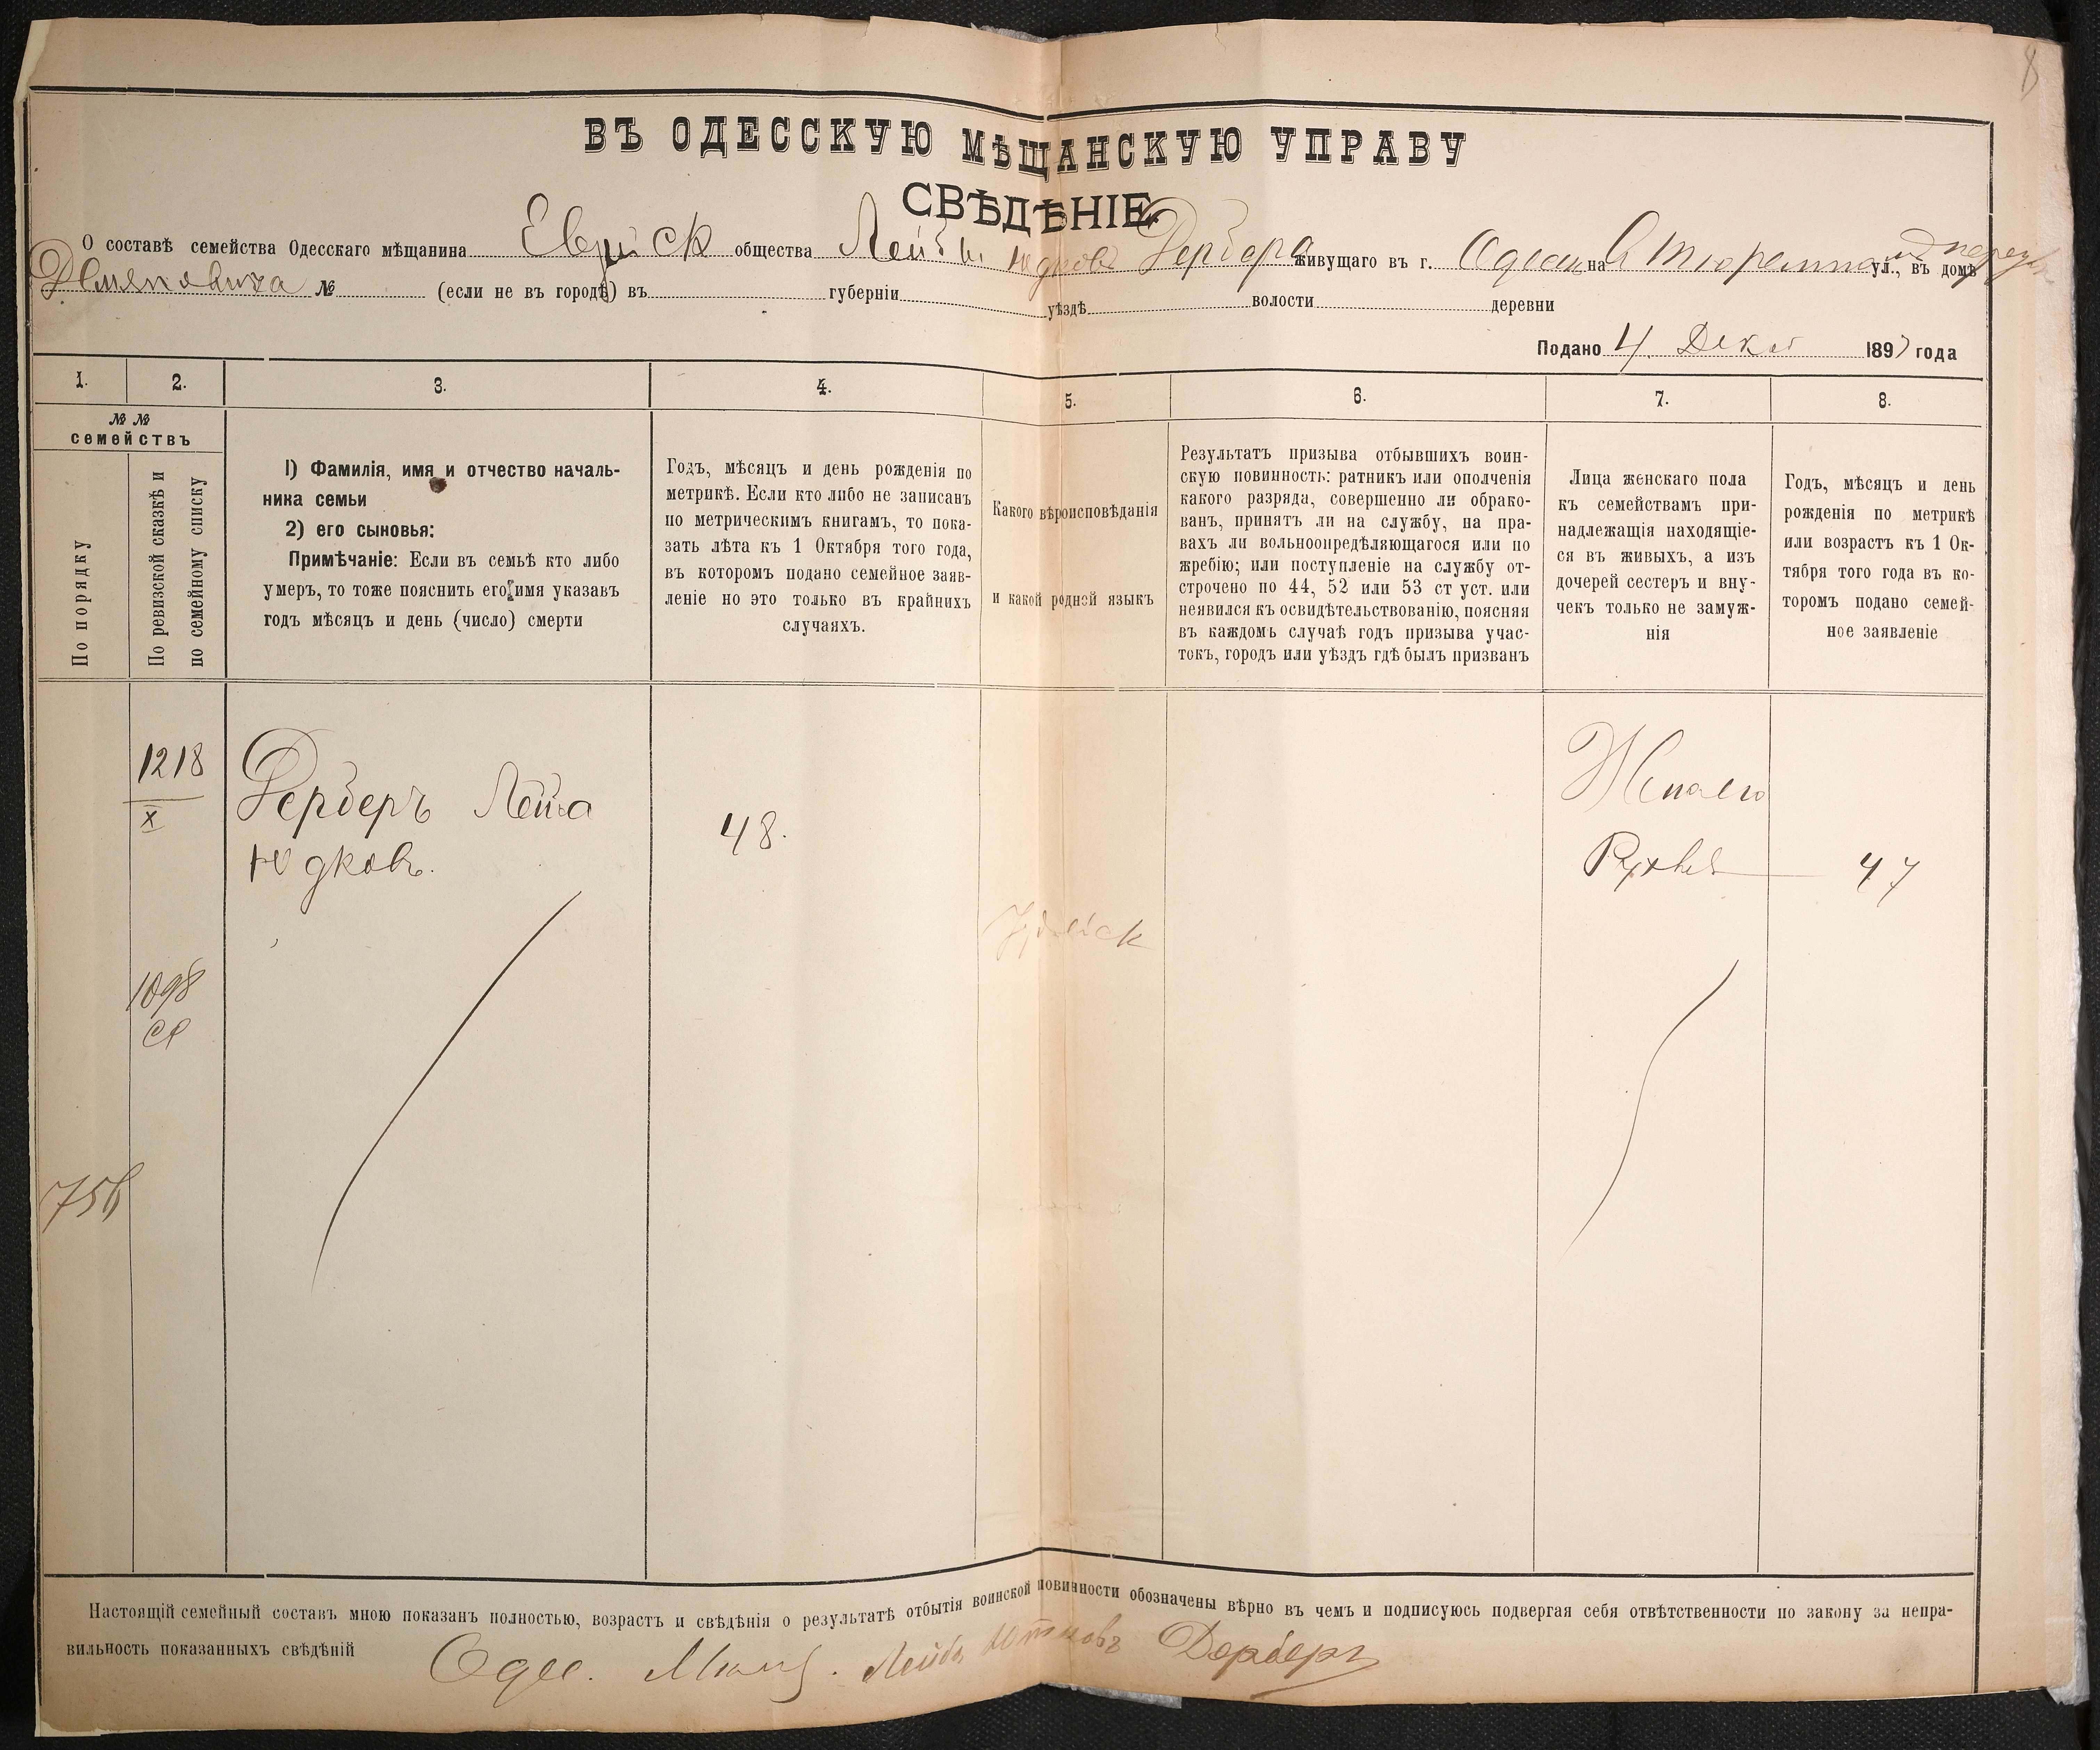 8
ВЪ ОДЕССКУЮ МѢЩАНСКУЮ УПРАВУ
СВѢДѢНІЕ
О составѣ семейства Одесскаго мѣщанина Еврейск общества Лейбы Юдкова Дербера живущаго въ г. Одессѣ на ул., въ домѣ
№ (если не въ городѣ) въ губерніи уѣздѣ волости деревни
Подано 4 Декаб 1897 года
1. 2. 3. 4. 5. 6. 7. 8.
№ №
семействъ
По порядку
По ревизской сказкѣ и
по семейному списку
1) Фамилія, имя и отчество началь-
ника семьи
2) его сыновья:
Примѣчаніе: Если въ семьѣ кто либо
умеръ, то тоже пояснить его имя указавъ
годъ мѣсяцъ и день (число) смерти
Годъ, мѣсяцъ и день рожденія по
метрикѣ. Если кто либо не записанъ
по метрическимъ книгамъ, то пока-
зать лѣта къ 1 Октября того года,
въ которомъ подано семейное заяв-
леніе но это только въ крайнихъ
случаяхъ.
Какого вѣроисповѣданія
и какой родной языкъ
Результатъ призыва отбывшихъ воин-
скую повинность: ратникъ или ополченія
какого разряда, совершенно ли обрако-
ванъ, принятъ ли на службу, на пра-
вахъ ли вольноопредѣляющагося или по
жребію; или поступленіе на службу от-
строчено по 44, 52 или 53 ст уст. или
неявился къ освидѣтельствованію, поясняя
въ каждомъ случаѣ годъ призыва учас-
токъ, городъ или уѣздъ гдѣ былъ призванъ
Лица женскаго пола
къ семействамъ при-
надлежащія находящіе-
ся въ живыхъ, а изъ
дочерей сестеръ и вну-
чекъ только не замуж-
нія
Годъ, мѣсяцъ и день
рожденія по метрикѣ
или возрастъ къ 1 Ок-
тября того года въ ко-
торомъ подано семей-
ное заявленіе
1218
X
Дерберъ Лейба
Юдковъ.
48.
Жена его
Рухля
47
Іудейск
1098
756
Настоящій семейный составъ мною показанъ полностью, возрастъ и свѣдѣнія о результатѣ отбытія воинской повинности обозначены вѣрно въ чемъ и подписуюсь подвергая себя отвѣтственности по закону за непра-
вильность показанныхъ свѣдѣній Одес. Мѣщ. Лейба Дерберъ